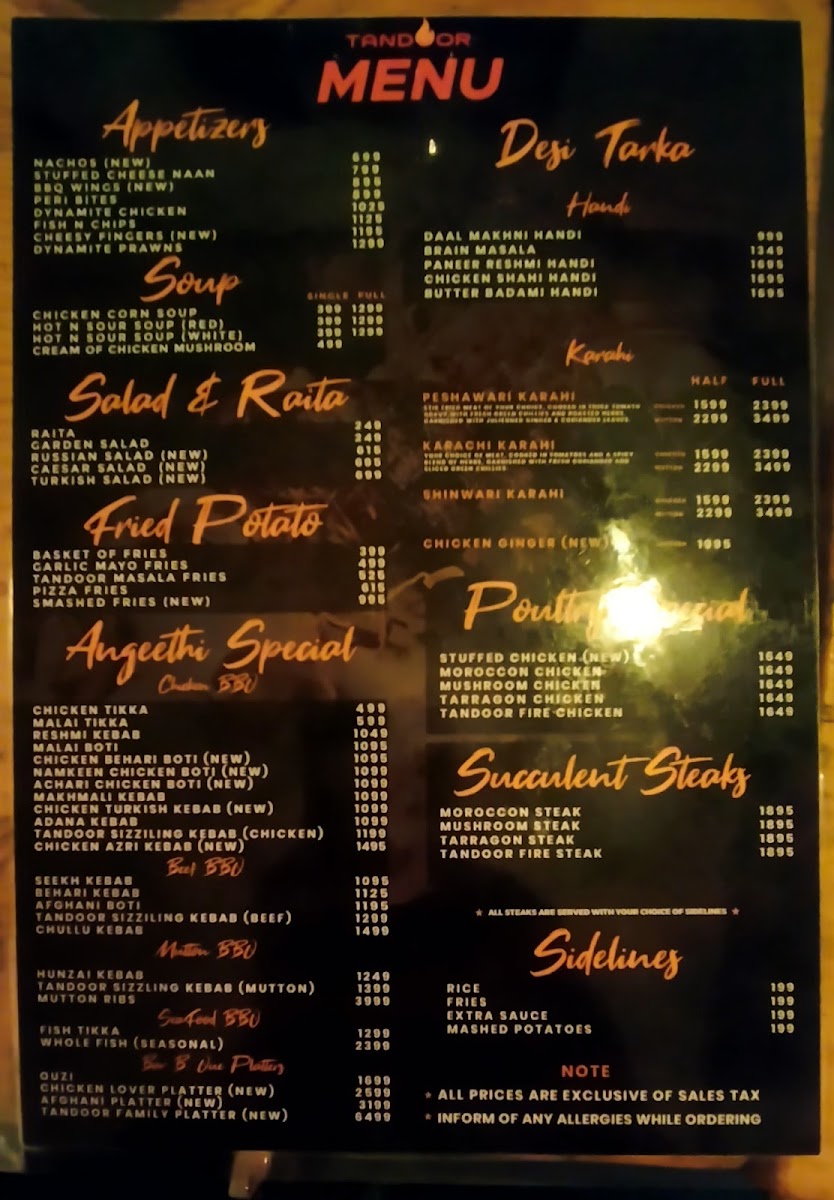 TANDOOR
MENU
Appetizers
NACHOS (NEW) 699
STUFFED CHEESE NAAN 799
BBQ WINGS (NEW) 899
PERI BITES 899
DYNAMITE CHICKEN 1025
FISH N CHIPS 1125
CHEESY FINGERS (NEW) 1195
DYNAMITE PRAWNS 1299
Soup
SINGLE FULL
CHICKEN CORN SOUP 399 1299
HOT N SOUR SOUP (RED) 399 1299
HOT N SOUR SOUP (WHITE) 399 1299
CREAM OF CHICKEN MUSHROOM 499
Salad & Raita
RAITA 249
GARDEN SALAD 249
RUSSIAN SALAD (NEW)
CAESAR SALAD (NEW)
TURKISH SALAD (NEW)
Fried Potato
BASKET OF FRIES 399
GARLIC MAYO FRIES 499
TANDOOR MASALA FRIES 525
PIZZA FRIES 615
SMASHED FRIES (NEW) 995
Angeethi Special
Chicken BBQ
CHICKEN TIKKA 499
MALAI TIKKA 599
RESHMI KEBAB 1049
MALAI BOTI 1095
CHICKEN BEHARI BOTI (NEW) 1095
NAMKEEN CHICKEN BOTI (NEW) 1099
ACHARI CHICKEN BOTI (NEW) 1099
MAKHMALI KEBAB 1099
CHICKEN TURKISH KEBAB (NEW) 1099
ADANA KEBAB 1099
TANDOOR SIZZILING KEBAB (CHICKEN) 1199
CHICKEN AZRI KEBAB (NEW) 1495
Beef BBQ
SEEKH KEBAB 1095
BEHARI KEBAB 1125
AFGHANI BOTI 1195
TANDOOR SIZZILING KEBAB (BEEF) 1299
CHULLU KEBAB 1499
Mutton BBQ
HUNZAI KEBAB 1249
TANDOOR SIZZLING KEBAB (MUTTON) 1399
MUTTON RIBS 3999
SeaFood BBQ
FISH TIKKA 1299
WHOLE FISH (SEASONAL) 2399
Bar B Que Platters
OUZI 1699
CHICKEN LOVER PLATTER (NEW) 2599
AFGHANI PLATTER (NEW) 3199
TANDOOR FAMILY PLATTER (NEW) 6499
Desi Tarka
Handi
DAAL MAKHNI HANDI 999
BRAIN MASALA 1349
PANEER RESHMI HANDI 1695
CHICKEN SHAHI HANDI 1695
BUTTER BADAMI HANDI 1695
Karahi
HALF FULL
PESHAWARI KARAHI
STIR FRIED MEAT OF YOUR CHOICE, COOKED IN THICK TOMATO CHICKEN 1599 2399
GRAVY WITH FRESH GREEN CHILLIES AND ROASTED HERBS, MUTTON 2299 3499
GARNISHED WITH JULIENNED GINGER & CORIANDER LEAVES.
KARACHI KARAHI
YOUR CHOICE OF MEAT, COOKED IN TOMATOES AND A SPICY CHICKEN 1599 2399
BLEND OF HERBS, GARNISHED WITH FRESH CORIANDER AND MUTTON 2299 3499
SLICED GREEN CHILLIES
SHINWARI KARAHI CHICKEN 1599 2399
MUTTON 2299 3499
CHICKEN GINGER (NEW) 1995
Poultry Special
STUFFED CHICKEN (NEW) 1649
MOROCCON CHICKEN 1649
MUSHROOM CHICKEN 1649
TARRAGON CHICKEN 1649
TANDOOR FIRE CHICKEN 1649
Succulent Steaks
MOROCCON STEAK 1895
MUSHROOM STEAK 1895
TARRAGON STEAK 1895
TANDOOR FIRE STEAK 1895
★ ALL STEAKS ARE SERVED WITH YOUR CHOICE OF SIDELINES ★
Sidelines
RICE 199
FRIES 199
EXTRA SAUCE 199
MASHED POTATOES 199
NOTE
★ ALL PRICES ARE EXCLUSIVE OF SALES TAX
★ INFORM OF ANY ALLERGIES WHILE ORDERING